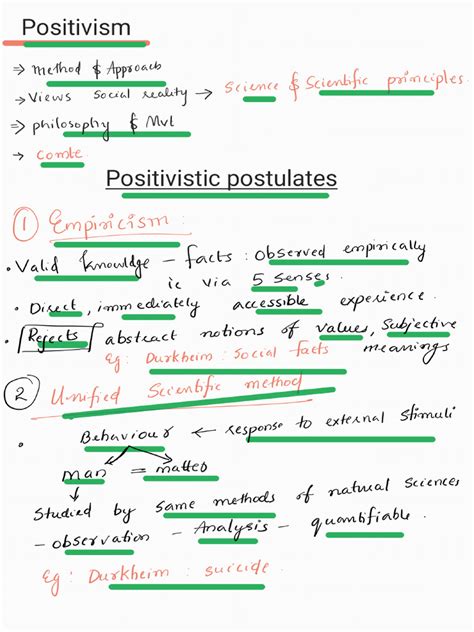 Positivism
→ Method & Approach
→ Views Social reality → Science & Scientific principles.
⇒ philosophy & Mvt
→ Comte
Positivistic postulates
① Empiricism :
• Valid knowledge – facts : observed empirically
ie via 5 senses.
• Direct, immediately accessible experience.
• Rejects abstract notions of values, Subjective
meanings
Eg : Durkheim : Social facts
② Unified Scientific method
• Behaviour ← response to external Stimuli
man = matter
Studied by same methods of natural Sciences
– observation – Analysis – quantifiable.
Eg : Durkheim : suicide.